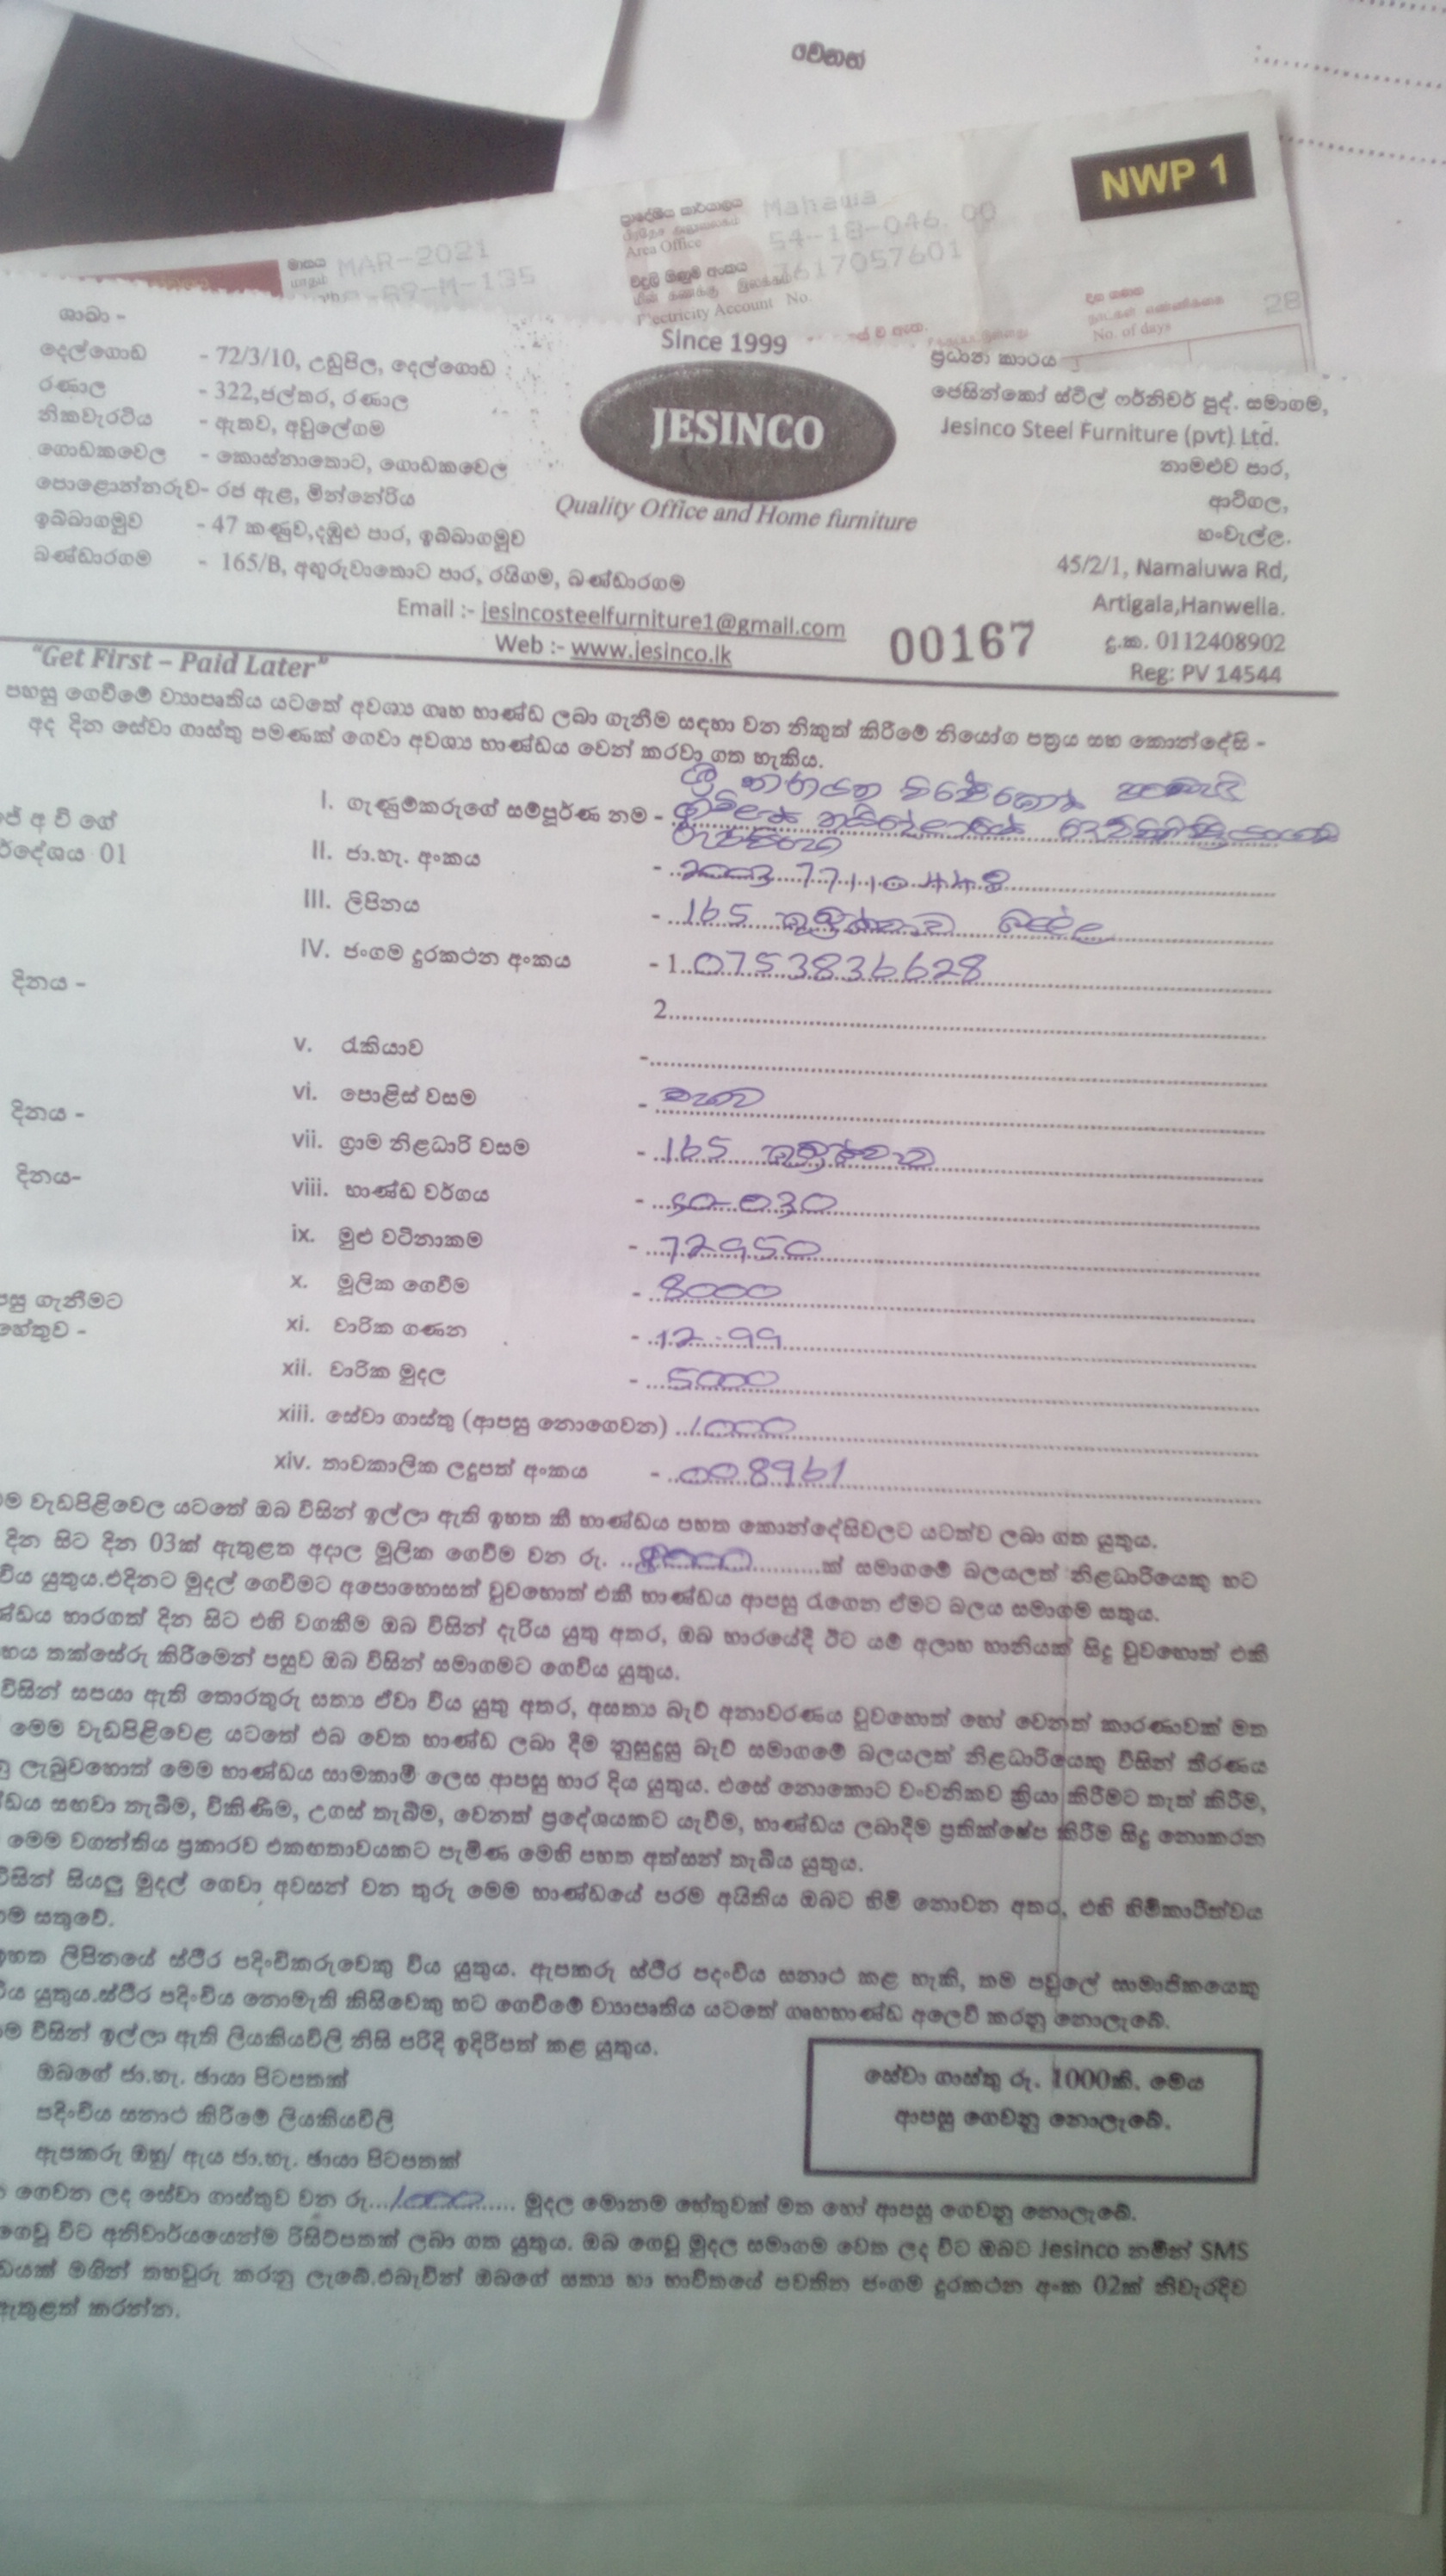 වෙනත්
NWP 1
ප්‍රාදේශීය කාර්යාලය
Area Office
Mahawa
54-18-046.00
විදුලි ගිණුම් අංකය
Electricity Account No.
7617057601
මාසය
MAR-2021
69-M-135
දින ගණන
No. of days
28
ශාඛා -
දෙල්ගොඩ - 72/3/10, උඩුපිල, දෙල්ගොඩ
රණාල - 322,ජල්තර, රණාල
නිකවැරටිය - ඇතව, අවුලේගම
ගොඩකවෙල - කොස්නාතොට, ගොඩකවෙල
පොළොන්නරුව- රජ ඇළ, මින්නේරිය
ඉබ්බාගමුව - 47 කණුව,දඹුළු පාර, ඉබ්බාගමුව
බණ්ඩාරගම - 165/B, අතුරුවාතොට පාර, රයිගම, බණ්ඩාරගම
Since 1999
JESINCO
Quality Office and Home furniture
ප්‍රධාන කාරය
ජෙසින්කෝ ස්ටීල් ෆර්නිචර් පුද්. සමාගම,
Jesinco Steel Furniture (pvt) Ltd.
නාමළුව පාර,
ආටිගල,
හංවැල්ල.
45/2/1, Namaluwa Rd,
Artigala,Hanwella.
දු.ක. 0112408902
Reg: PV 14544
Email :- jesincosteelfurniture1@gmail.com
Web :- www.jesinco.lk
00167
“Get First – Paid Later”
පහසු ගෙවීමේ ව්‍යාපෘතිය යටතේ අවශ්‍ය ගෘහ භාණ්ඩ ලබා ගැනීම සඳහා වන නිකුත් කිරීමේ නියෝග පත්‍රය සහ කොන්දේසි -
අද දින සේවා ගාස්තු පමණක් ගෙවා අවශ්‍ය භාණ්ඩය වෙන් කරවා ගත හැකිය.
ජේ අ වි ගේ
ර්දේශය 01
I. ගැණුම්කරුගේ සම්පූර්ණ නම -
II. ජා.හැ. අංකය - 200377110448
III. ලිපිනය - 165
IV. ජංගම දුරකථන අංකය - 1. 0753836628
2.
දිනය -
v. රැකියාව -
vi. පොලිස් වසම -
දිනය -
vii. ග්‍රාම නිළධාරි වසම - 165
දිනය-
viii. භාණ්ඩ වර්ගය - so-030
ix. මුළු වටිනාකම - 72950
x. මූලික ගෙවීම - 8000
පසු ගැනීමට
හේතුව -
xi. වාරික ගණන - 12-99
xii. වාරික මුදල - 5000
xiii. සේවා ගාස්තු (ආපසු නොගෙවන) 1000
xiv. තාවකාලික ලදුපත් අංකය - 008961
ම වැඩපිළිවෙල යටතේ ඔබ විසින් ඉල්ලා ඇති ඉහත කී භාණ්ඩය පහත කොන්දේසිවලට යටත්ව ලබා ගත යුතුය.
දින සිට දින 03ක් ඇතුළත අදාල මූලික ගෙවීම වන රු. 8000 ක් සමාගමේ බලයලත් නිළධාරියෙකු හට
විය යුතුය.එදිනට මුදල් ගෙවීමට අපොහොසත් වුවහොත් එකී භාණ්ඩය ආපසු රැගෙන ඒමට බලය සමාගම සතුය.
ණ්ඩය භාරගත් දින සිට එහි වගකීම ඔබ විසින් දැරිය යුතු අතර, ඔබ භාරයේදී ඊට යම් අලාභ හානියක් සිදු වුවහොත් එකී
භය තක්සේරු කිරීමෙන් පසුව ඔබ විසින් සමාගමට ගෙවිය යුතුය.
විසින් සපයා ඇති තොරතුරු සත්‍ය ඒවා විය යුතු අතර, අසත්‍ය බැව් අනාවරණය වුවහොත් හෝ වෙනත් කාරණාවක් මත
මෙම වැඩපිළිවෙළ යටතේ එබ වෙත භාණ්ඩ ලබා දීම නුසුදුසු බැව් සමාගමේ බලයලත් නිළධාරියෙකු විසින් තීරණය
නු ලැබුවහොත් මෙම භාණ්ඩය සාමකාමී ලෙස ආපසු භාර දිය යුතුය. එසේ නොකොට වංචනිකව ක්‍රියා කිරීමට තැත් කිරීම,
්ඩය සඟවා තැබීම, විකිණීම, උගස් තැබීම, වෙනත් ප්‍රදේශයකට යැවීම, භාණ්ඩය ලබාදීම ප්‍රතික්ෂේප කිරීම සිදු නොකරන
මෙම වගන්තිය ප්‍රකාරව එකඟතාවයකට පැමිණ මෙහි පහත අත්සන් තැබිය යුතුය.
විසින් සියලු මුදල් ගෙවා අවසන් වන තුරු මෙම භාණ්ඩයේ පරම අයිතිය ඔබට හිමි නොවන අතර, එහි හිමිකාරීත්වය
ගම සතුවේ.
ඉහත ලිපිනයේ ස්ථිර පදිංචිකරුවෙකු විය යුතුය. ඇපකරු ස්ථිර පදංචිය සනාථ කළ හැකි, තම පවුලේ සාමාජිකයෙකු
විය යුතුය.ස්ථිර පදිංචිය නොමැති කිසිවෙකු හට ගෙවීමේ ව්‍යාපෘතිය යටතේ ගෘහභාණ්ඩ අලෙවි කරනු නොලැබේ.
ගම විසින් ඉල්ලා ඇති ලියකියවිලි නිසි පරිදි ඉදිරිපත් කළ යුතුය.
ඔබගේ ජා.හැ. ඡායා පිටපතක්
පදිංචිය සනාථ කිරීමේ ලියකියවිලි
ඇපකරු ඔහු/ ඇය ජා.හැ. ඡායා පිටපතක්
සේවා ගාස්තු රු. 1000කි. මෙය
ආපසු ගෙවනු නොලැබේ.
ගෙවන ලද සේවා ගාස්තුව වන රු. 1000 මුදල මොනම හේතුවක් මත හෝ ආපසු ගෙවනු නොලැබේ.
ගෙවූ විට අනිවාර්යයෙන්ම රිසිට්පතක් ලබා ගත යුතුය. ඔබ ගෙවූ මුදල සමාගම වෙත ලද විට ඔබට Jesinco නමින් SMS
ඩයක් මගින් තහවුරු කරනු ලැබේ.එබැවින් ඔබගේ සත්‍ය හා භාවිතයේ පවතින ජංගම දුරකථන අංක 02ක් නිවැරදිව
ඇතුළත් කරන්න.